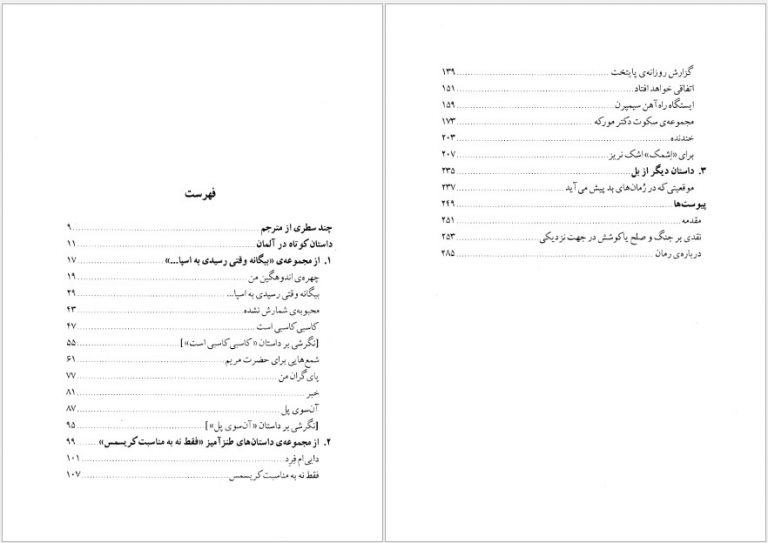 فهرست
چند سطری از مترجم ... ۹
داستان کوتاه در آلمان ... ۱۱
۱. از مجموعه‌ی «بیگانه وقتی رسیدی به اسپا...» ... ۱۷
چهره‌ی اندوهگین من ... ۱۹
بیگانه وقتی رسیدی به اسپا... ... ۲۹
محبوبه‌ی شمارش نشده ... ۴۳
کاسبی کاسبی است ... ۴۷
[نگرشی بر داستان «کاسبی کاسبی است»] ... ۵۵
شمع‌هایی برای حضرت مریم ... ۶۱
پای‌گران من ... ۷۷
خبر ... ۸۱
آن‌سوی پل ... ۸۷
[نگرشی بر داستان «آن‌سوی پل»] ... ۹۵
۲. از مجموعه‌ی داستان‌های طنزآمیز «فقط نه به مناسبت کریسمس» ... ۹۹
دایی‌ام فِرِد ... ۱۰۱
فقط نه به مناسبت کریسمس ... ۱۰۷
گزارش روزانه‌ی پایتخت ... ۱۳۹
اتفاقی خواهد افتاد ... ۱۵۱
ایستگاه راه‌آهن سیمپرن ... ۱۵۹
مجموعه‌ی سکوت دکتر مورکه ... ۱۷۳
خندنده ... ۲۰۳
برای «اِشمک» اشک نریز ... ۲۰۷
۳. داستان دیگر از بل ... ۲۳۵
موقعیتی که در رُمان‌های بد پیش می‌آید ... ۲۳۷
پیوست‌ها ... ۲۴۹
مقدمه ... ۲۵۱
نقدی بر جنگ و صلح یا کوشش در جهت نزدیکی ... ۲۵۳
درباره‌ی رمان ... ۲۸۵